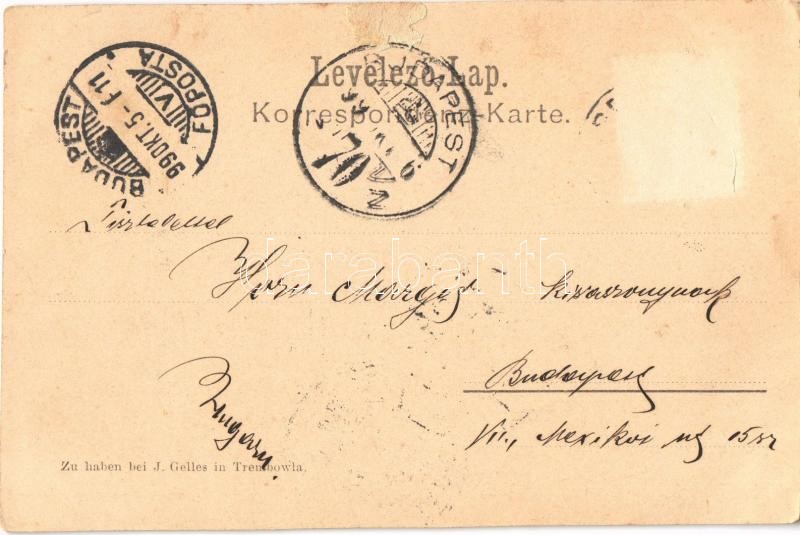 Levelező-Lap.
Korrespondenz-Karte.
BUDAPEST
FŐPOSTA
VII
99 OKT. 5
F 11
BUDAPEST
Tisztelettel
Horn Margit kisasszonynak
Budapest
VII., Mexikói út 15 sz
Hungary.
Zu haben bei J. Gelles in Trembowla.
darabanth